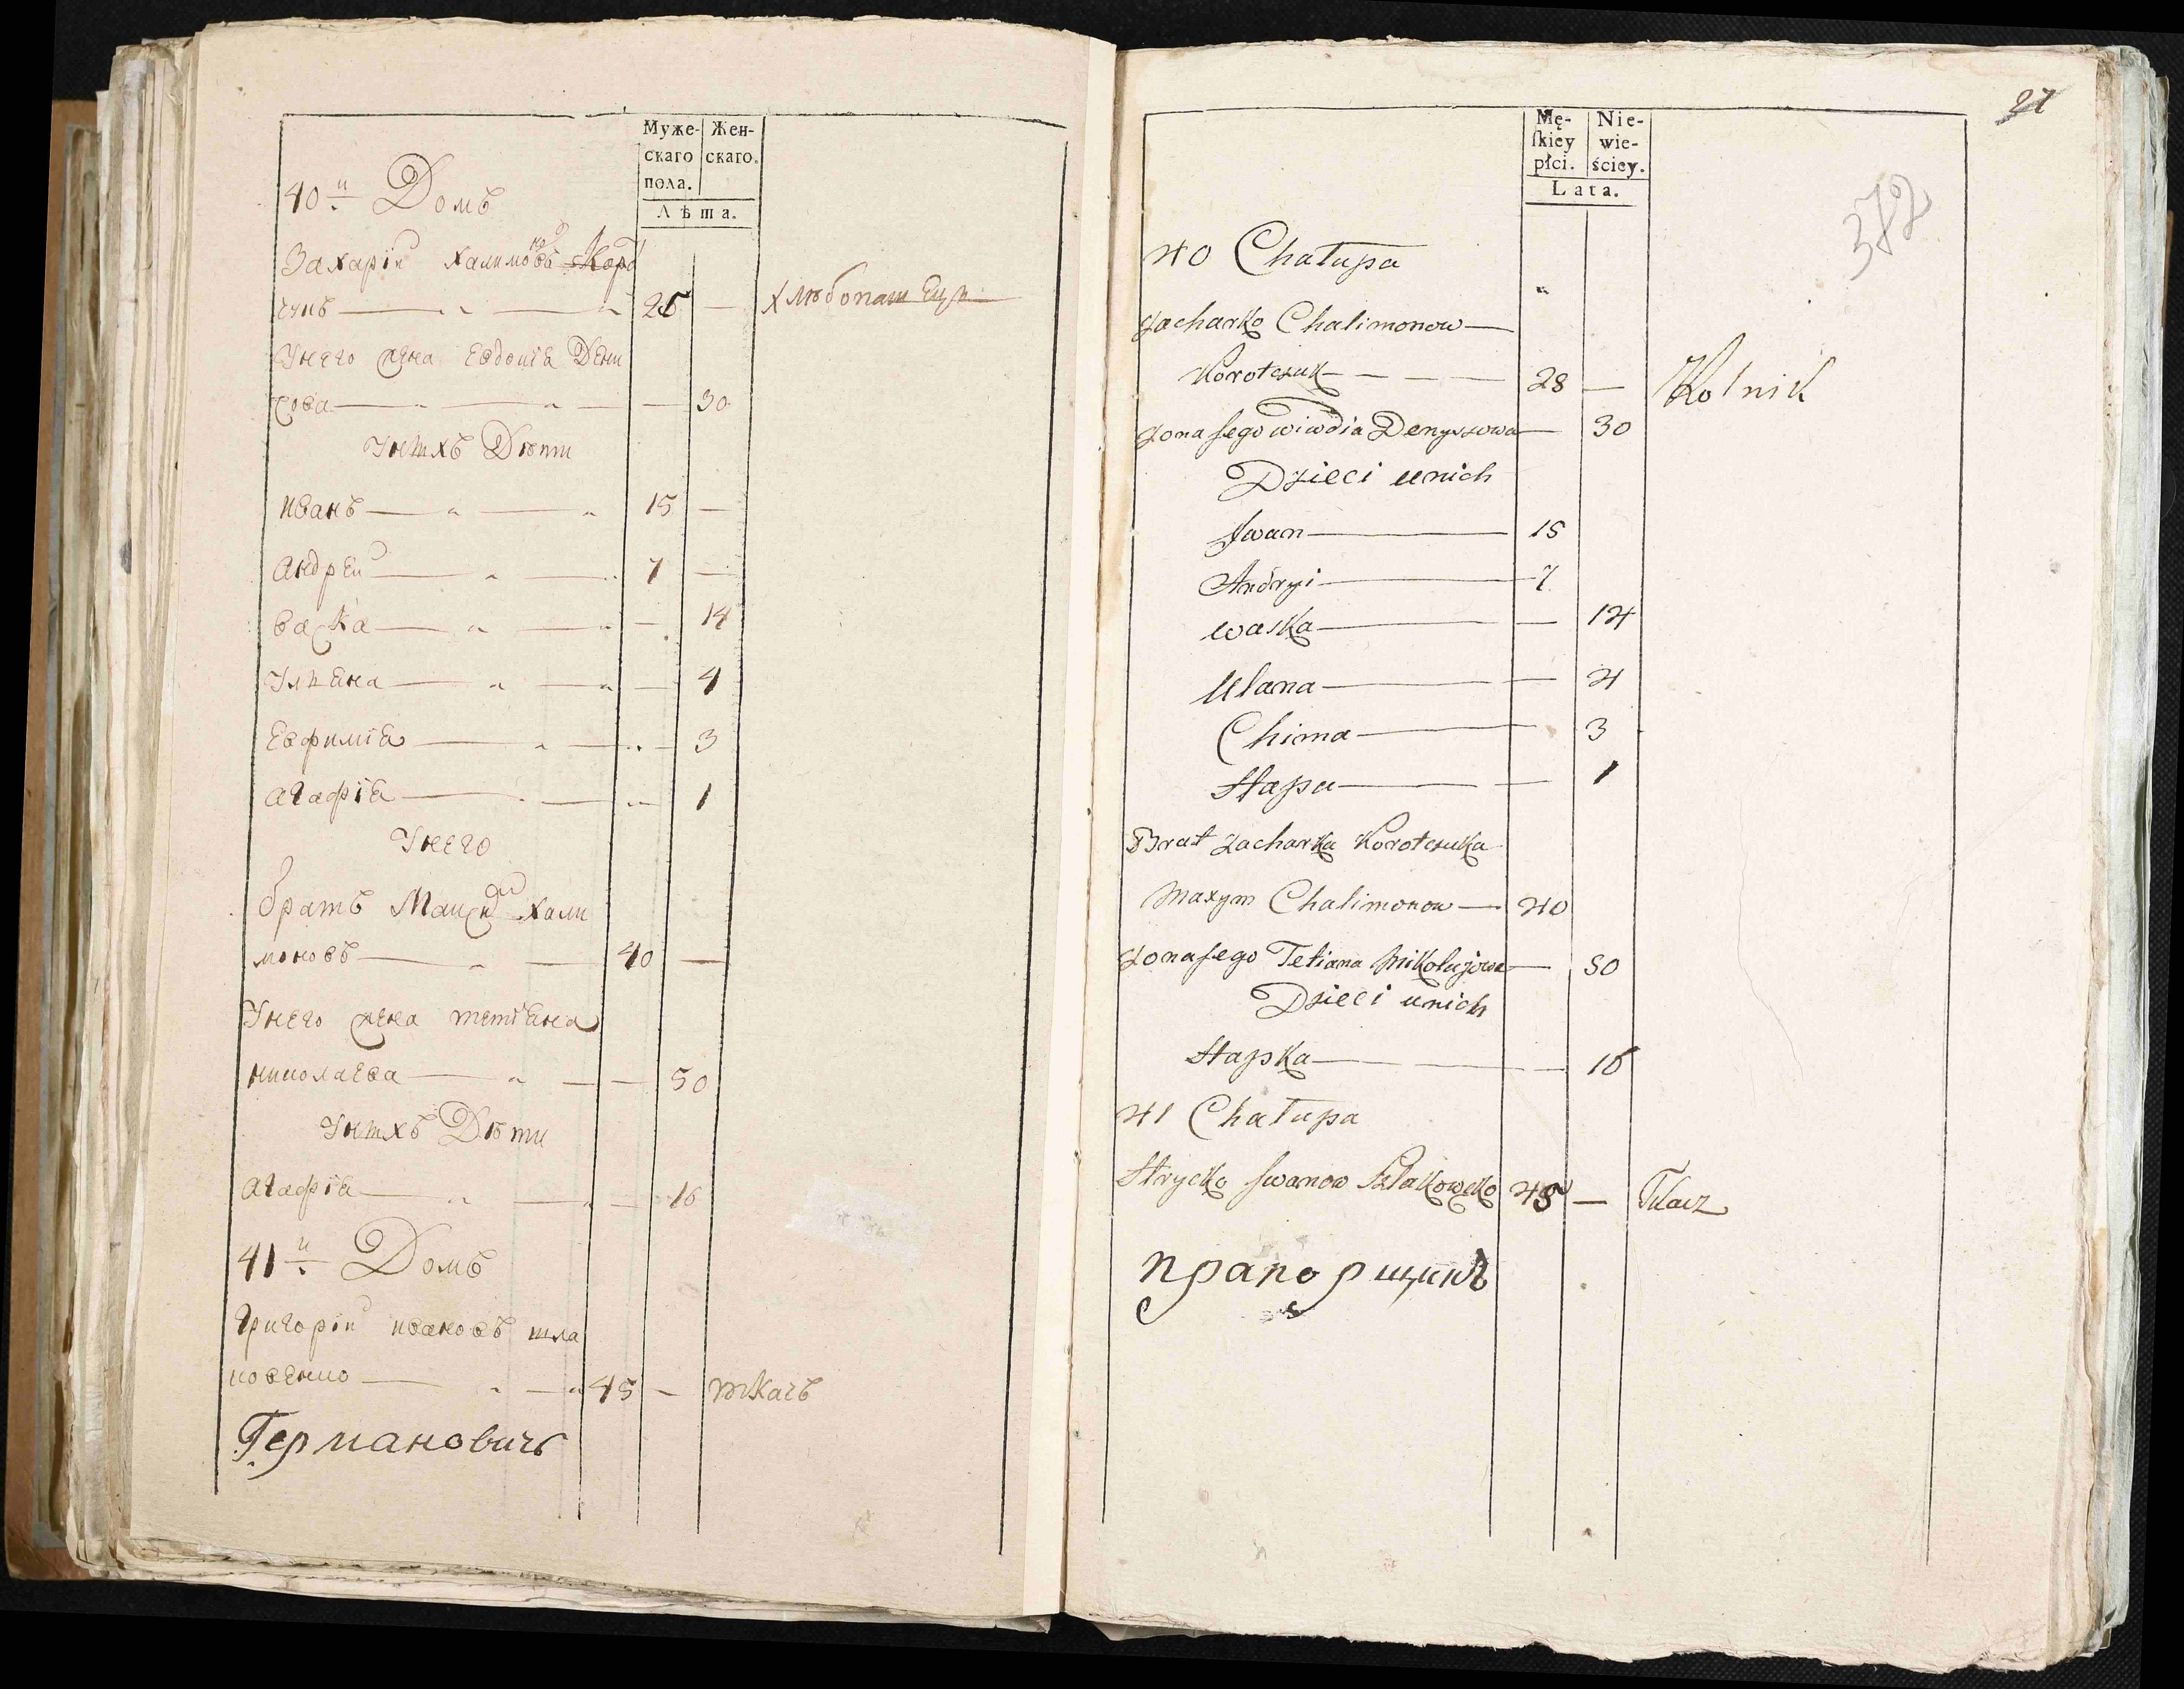 Муже-
скаго
пола.
Жен-
скаго.
Лѣта.
40й Домъ
Захарій Халимоновъ Коро
чукъ 28 — хлѣбопашецъ
Унего жена Евдокіа Дени
сова — 30
Унихъ Дѣти
иванъ 15 —
Андрей 7 —
васка — 14
Улиана — 4
Евфиміа — 3
агафіа — 1
Унего
братъ Максим Хали
моновъ 40 —
Унего жена тетіана
николаева — 50
Унихъ Дѣти
агафіа — 16
41й Домъ
григорій ивановъ шла
ковенко 45 — ткачъ
Германовичъ
27
372
Mę-
skiey
płci.
Nie-
wie-
ściey.
Lata.
40 Chałupa
Zacharko Chalimonow
Korotczuk 28 — Rolnik
Zona Jego wiwdia Denyszowa — 30
Dzieci unich
Iwan 15
Andryi 7
waska — 14
Ulana — 4
Chima 3
Hapa — 1
Brat Zacharka Korotczuka
Maxym Chalimonow 40
Zona Jego Tetiana Mikołajowa — 50
Dzieci unich
Hapka — 16
41 Chałupa
Hrycko Iwanow Szlakowcko 45 — Tkacz
прапорщикъ